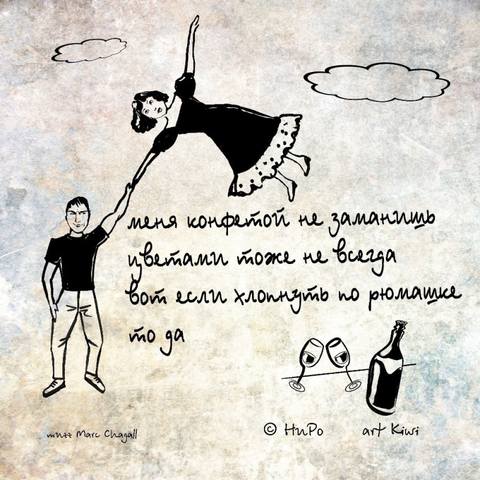 меня конфетой не заманишь
цветами тоже не всегда
вот если хлопнуть по рюмашке
то да
muzz Marc Chagall
© НиРо art Kiwi